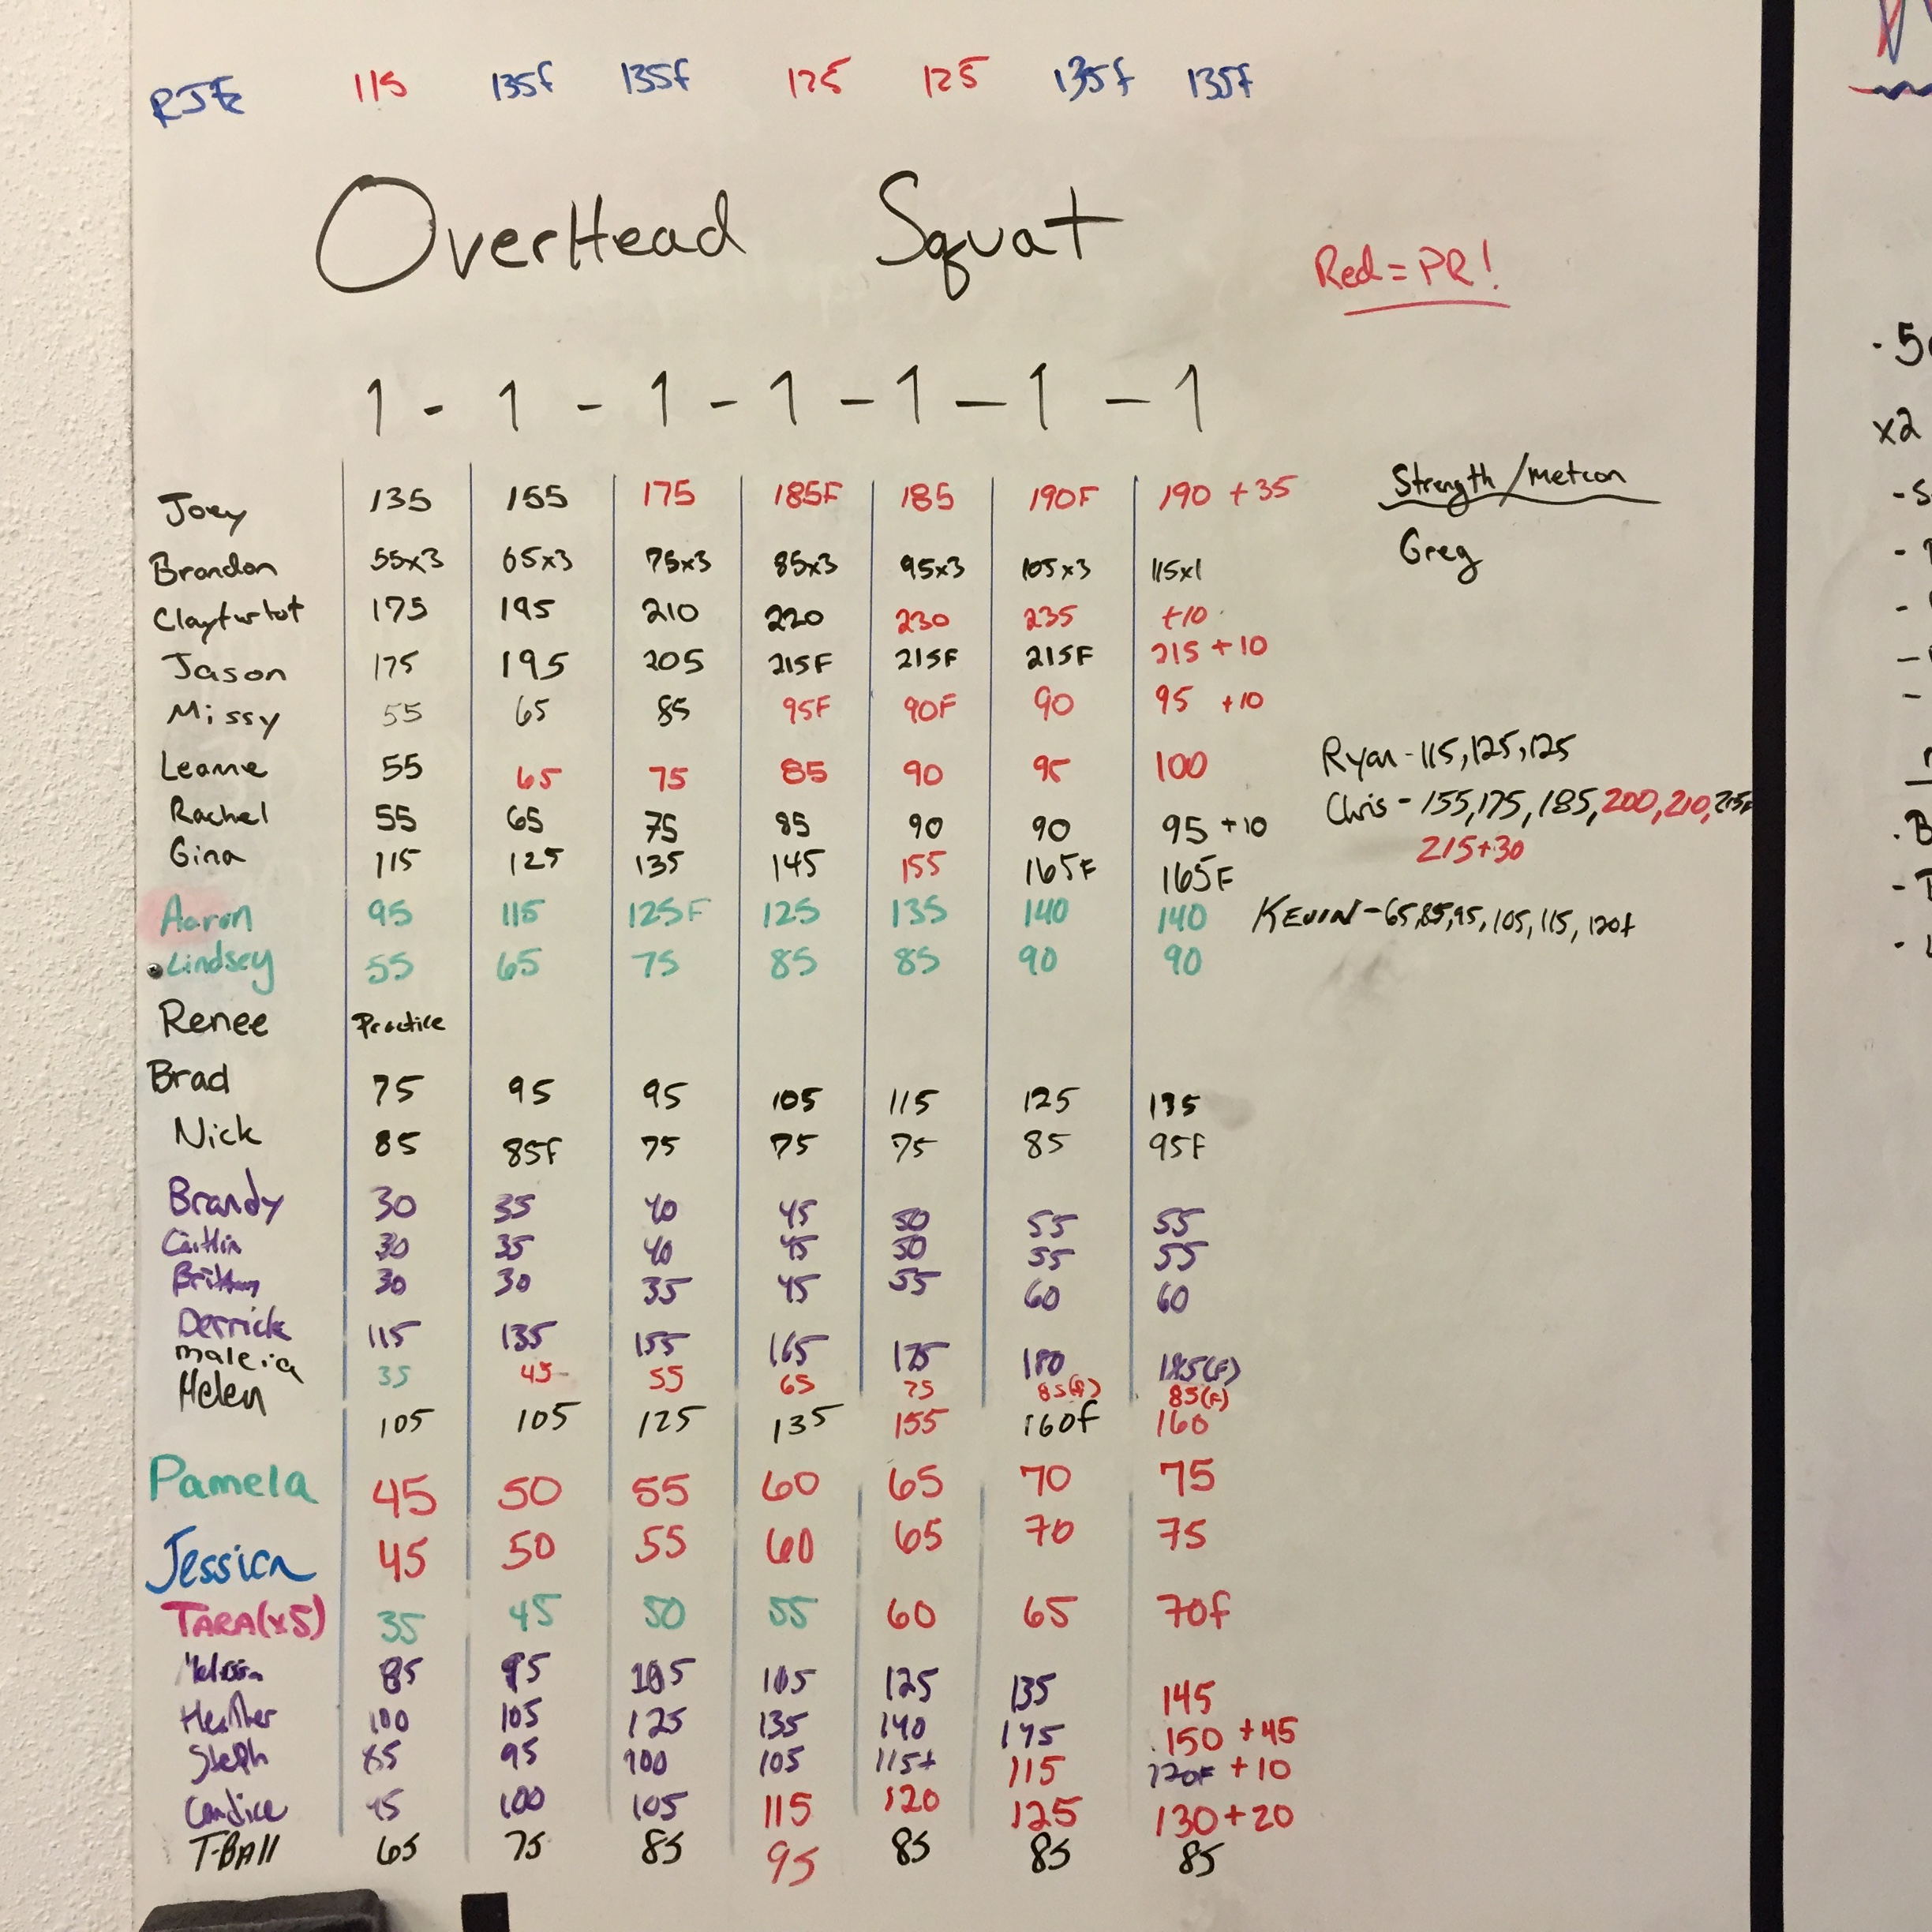 RJE 115 135f 135f 125 125 135f 135f
OverHead Squat
Red = PR!
1 - 1 - 1 - 1 - 1 - 1 - 1
Strength/metcon
Greg
Joey 135 155 175 185F 185 190F 190 +35
Brandon 55x3 65x3 75x3 85x3 95x3 105x3 115x1
175 195 210 220 230 235 +10
Jason 175 195 205 215F 215F 215F 215 +10
Missy 55 65 85 95F 90F 90 95 +10
Leanne 55 65 75 85 90 95 100
Rachel 55 65 75 85 90 90 95 +10
Gina 115 125 135 145 155 165F 165F
Aaron 95 115 125F 125 135 140 140
Lindsey 55 65 75 85 85 90 90
Renee Practice
Brad 75 95 95 105 115 125 135
Nick 85 85f 75 75 75 85 95F
Brandy 30 35 40 45 50 55 55
Caitlin 30 35 40 45 50 55 55
Brittany 30 30 35 45 55 60 60
Derrick 115 135 155 165 175 180 185(F)
maleia 35 45 55 65 75 85(F) 85(F)
Helen 105 105 125 135 155 160f 160
Pamela 45 50 55 60 65 70 75
Jessica 45 50 55 60 65 70 75
TARA(x5) 35 45 50 55 60 65 70f
Melissa 85 95 105 105 125 135 145
Heather 100 105 125 135 140 145 150 +45
Steph 85 95 100 105 115f 115 120F +10
Candice 95 100 105 115 120 125 130+20
T-BAll 65 75 85 95 85 85 85
Ryan - 115, 125, 125
Chris - 155, 175, 185, 200, 210, 215F
215+30
KEVIN - 65, 85, 95, 105, 115, 120f
x2